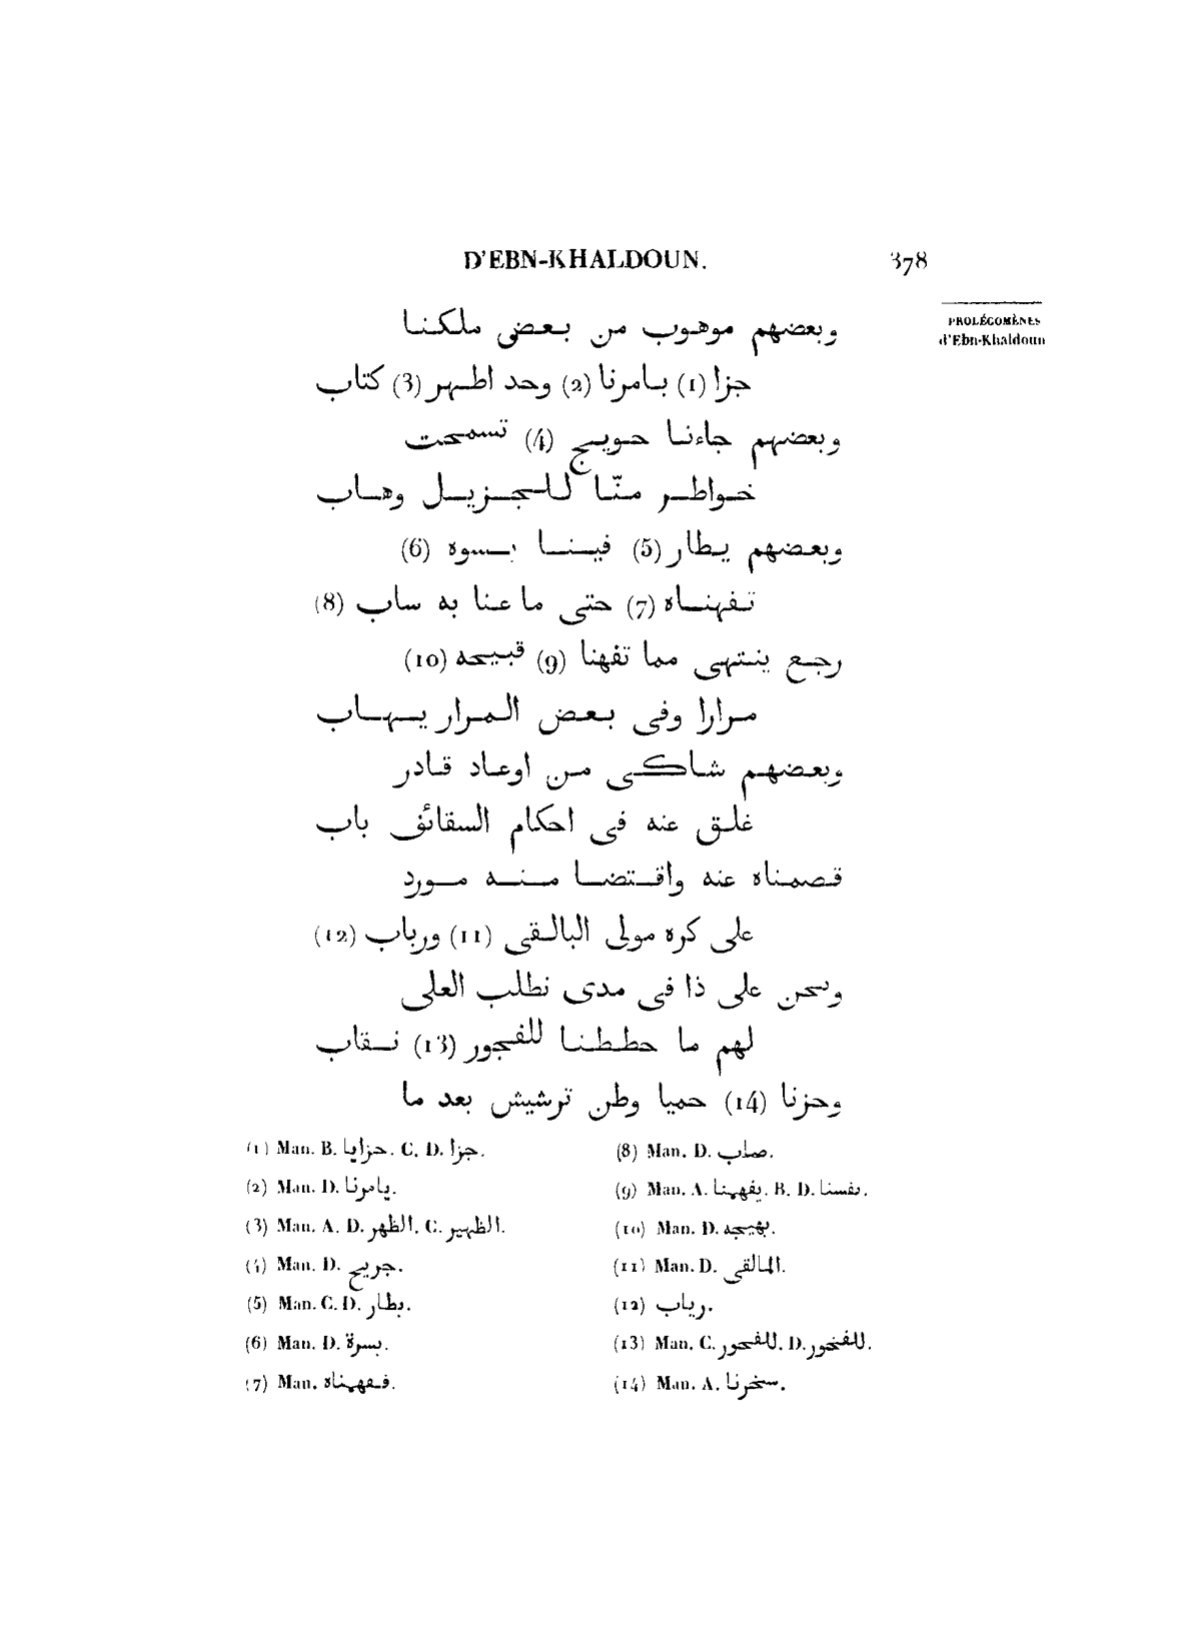 D'EBN-KHALDOUN. 378
PROLÉGOMÈNES
d'Ebn-Khaldoun
وبعضهم موهوب من بعض ملكنا
جزا (1) بامرنا (2) وحد اطهر (3) كتاب
وبعضهم جاءنا حويج (4) تسمحت
خواطر منّا للجزيل وهاب
وبعضهم يطار (5) فينا بسوه (6)
تفهناه (7) حتى ما عنا به ساب (8)
رجع ينتهى مما تفهنا (9) قبيحه (10)
مرارا وفى بعض المرار يهاب
وبعضهم شاكى من اوعاد قادر
غلق عنه فى احكام السقائف باب
فصمناه عنه واقتضا منه مورد
على كره مولى البالقى (11) ورباب (12)
ونحن على ذا فى مدى نطلب العلى
لهم ما حططنا للفجور (13) نقاب
وحزنا (14) حميا وطن ترشيش بعد ما
(1) Man. B. حزايا. C. D. جزا.
(2) Man. D. يامرنا.
(3) Man. A. D. الظهر. C. الظهير.
(4) Man. D. جريح.
(5) Man. C. D. بطار.
(6) Man. D. بسرة.
(7) Man. فقهيناه.
(8) Man. D. صاب.
(9) Man. A. يفهينا. B. D. نفسنا.
(10) Man. D. بهيجه.
(11) Man. D. المالقى.
(12) رياب.
(13) Man. C. للفحور. D. للفخور.
(14) Man. A. سخرنا.